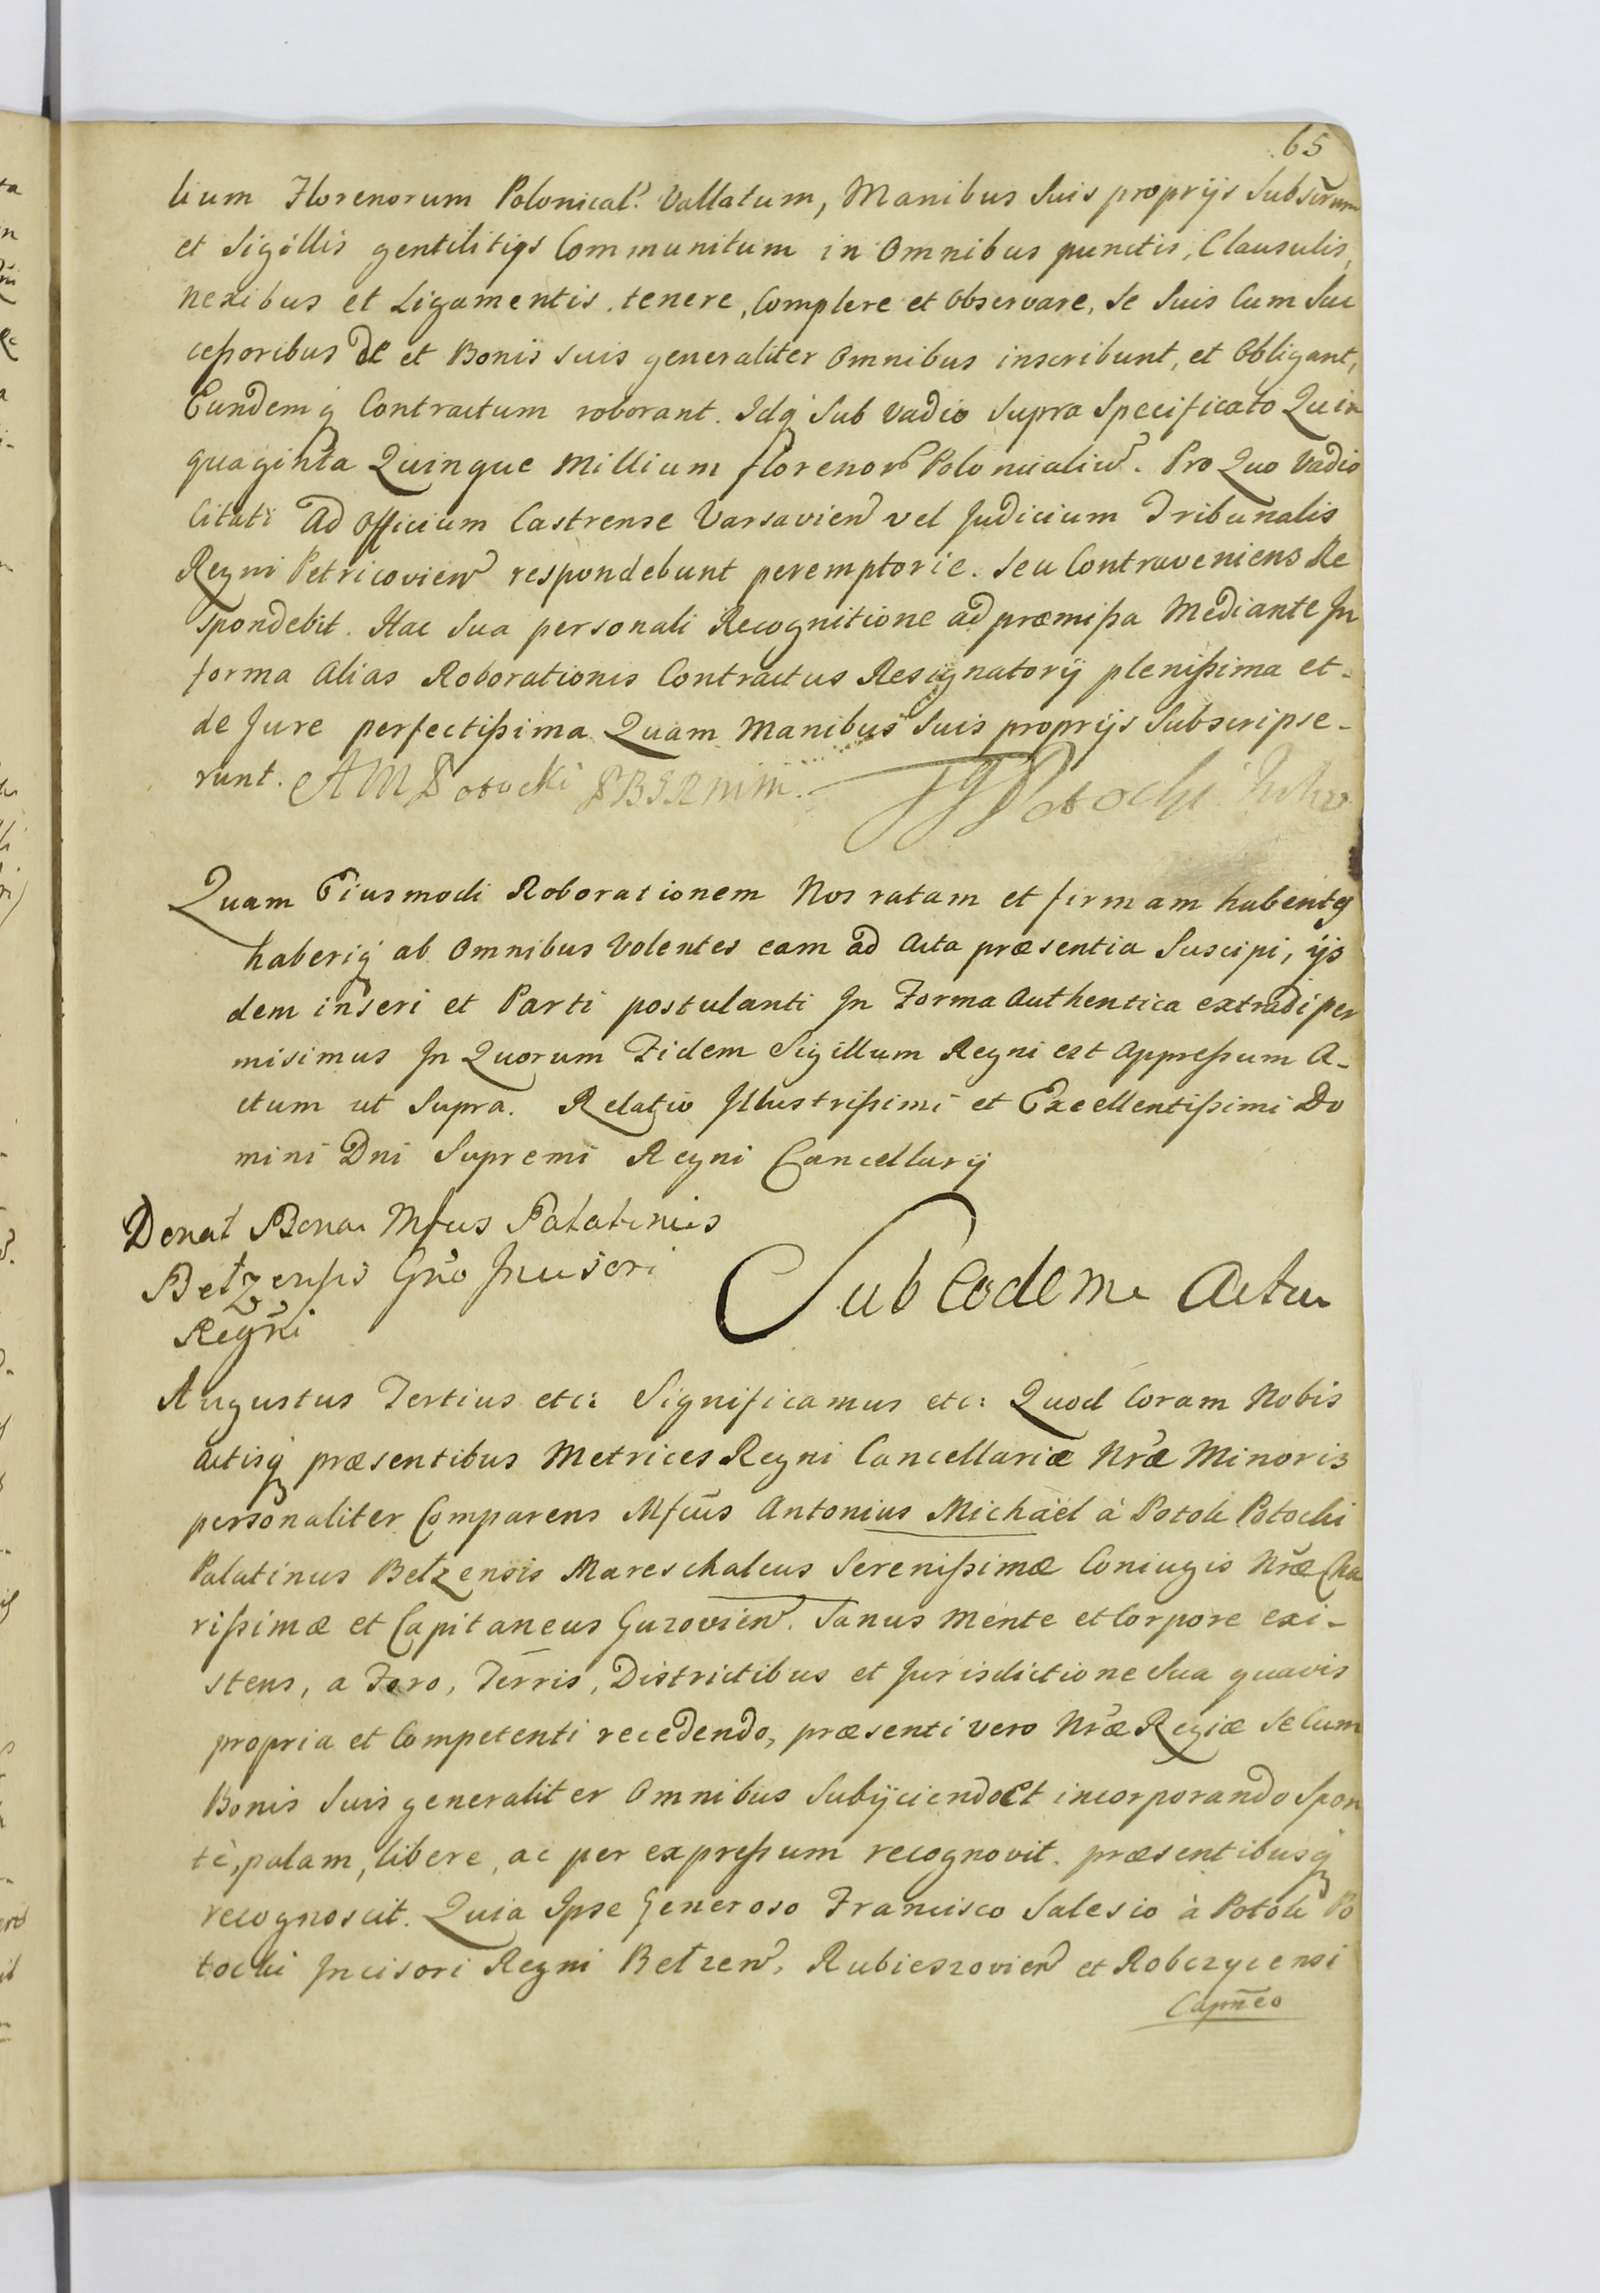 65
lium Florenorum Polonical. Vallatum, Manibus Suis proprijs Subscrum
et Sigillis gentilitijs Communitum in Omnibus punctis, Clausulis,
nexibus et Ligamentis, tenere, Complere et Observare, Se Suis Cum Suc
cessoribus De et Bonis suis generaliter Omnibus inscribunt, et Obligant,
Eundemq Contractum roborant. Idq Sub Vadio Supra Specificato Quin
quaginta Quinque Millium florenor Polonicaliu. Pro Quo Vadio
Citati Ad Officium Castrense Varsavien vel Judicium Tribunalis
Regni Petricovien respondebunt peremptorie. Seu Contraveniens Re
spondebit. Hac Sua personali Recognitione ad præmissa Mediante In
forma Alias Roborationis Contractus Resignatorij plenissima et
de Jure perfectissima Quam Manibus Suis proprijs Subscripse-
runt. AM Potocki
Potocki
Quam Eiusmodi Roborationem Nos ratam et firmam habentq
haberiq ab Omnibus Volentes eam ad Acta præsentia Suscipi, ijs
dem inseri et Parti postulanti In Forma Authentica extradi per
misimus In Quorum Fidem Sigillum Regni est Appressum A-
ctum ut Supra. Relatio Illustrissimi et Excellentissimi Do
mini Dni Supremi Regni Cancellarij
Donat Bona Mfcus Palatinus
Betzensis Gnō Incisori
Regni
Sub Eodem Actu
Augustus Tertius etc: Significamus etc: Quod Coram Nobis
Actisq præsentibus Metrices Regni Cancellariæ Nræ Minoris
personaliter Comparens Mfcūs Antonius Michaël à Potok Potocki
Palatinus Betzensis Mareschalcus Serenissimæ Coniugis Nræ Cha
rissimæ et Capitaneus Guzovien. Sanus Mente et Corpore exi-
stens, a Foro, Terris, Districtibus et Jurisdictione Sua quavis
propria et Competenti recedendo, præsenti vero Nræ Regiæ Se Cum
Bonis Suis generaliter Omnibus Subijciendo Et incorporando Spon
tè, palam, libere, ac per expressum recognovit. præsentibusq
recognoscit. Quia Ipse Generoso Francisco Salesio à Potok Po
tocki Incisori Regni Betzen, Rubieszovien et Robczycensi
Capnēo